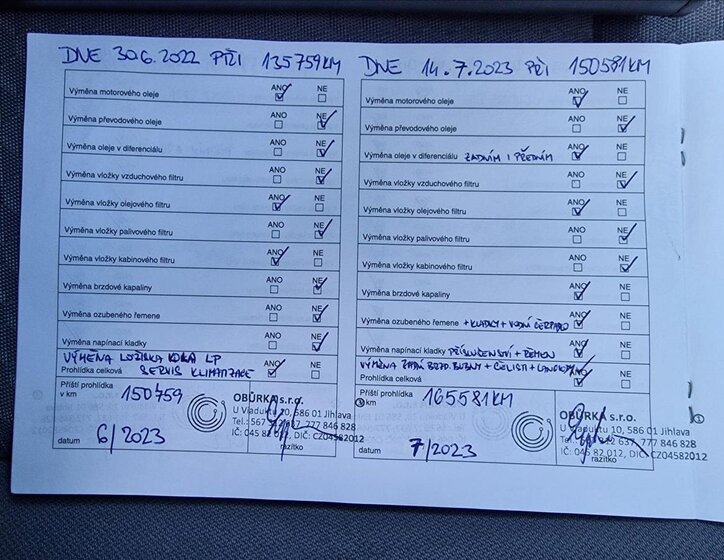 DNE 30.6.2022 PŘI 135759KM
ANO NE
Výměna motorového oleje
ANO NE
Výměna převodového oleje
ANO NE
Výměna oleje v diferenciálu
ANO NE
Výměna vložky vzduchového filtru
ANO NE
Výměna vložky olejového filtru
ANO NE
Výměna vložky palivového filtru
ANO NE
Výměna vložky kabinového filtru
ANO NE
Výměna brzdové kapaliny
ANO NE
Výměna ozubeného řemene
ANO NE
Výměna napínací kladky
VÝMĚNA LOŽISKA KOLA LP
ANO NE
Prohlídka celková SERVIS KLIMATIZACE
Příští prohlídka
v km 150759
OBŮRKA s.r.o.
U Viaduktu 20, 586 01 Jihlava
Tel.: 567 637, 777 846 828
IČ: 045 82 012, DIČ: CZ04582012
datum 6/2023
razítko
DNE 14.7.2023 PŘI 150581KM
ANO NE
Výměna motorového oleje
ANO NE
Výměna převodového oleje
ANO NE
Výměna oleje v diferenciálu ZADNÍM I PŘEDNÍM
ANO NE
Výměna vložky vzduchového filtru
ANO NE
Výměna vložky olejového filtru
ANO NE
Výměna vložky palivového filtru
ANO NE
Výměna vložky kabinového filtru
ANO NE
Výměna brzdové kapaliny
ANO NE
Výměna ozubeného řemene + KLADKY + VODNÍ ČERPADLO
ANO NE
Výměna napínací kladky PŘÍSLUŠENSTVÍ + ŘEMEN
VÝMĚNA ZADNÍ BRZD. BUBNY + ČELISTI +
ANO NE
Prohlídka celková
Příští prohlídka
v km 165581KM
OBŮRKA s.r.o.
U Viaduktu 20, 586 01 Jihlava
Tel.: 637, 777 846 828
IČ: 045 82 012, DIČ: CZ04582012
datum 7/2023
razítko